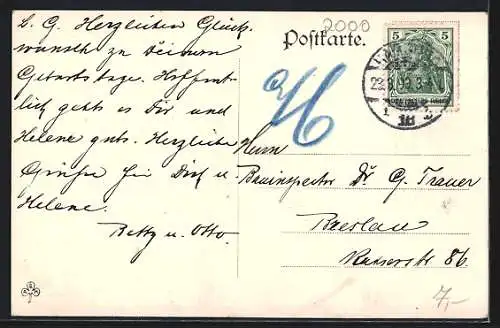 L. G. Herzlichen Glück
wunsch zu Deinem
Geburtstage. Hoffent
lich geht es Dir und
Helene gut. Herzliche
Grüsse für Dich u.
Helene.
Betty u. Otto.
2000
Postkarte.
5 5
22. 3-4
46
Herrn
Bauinspector Dr. G. Trauer
Breslau
Kaiserstr 86.
7,-